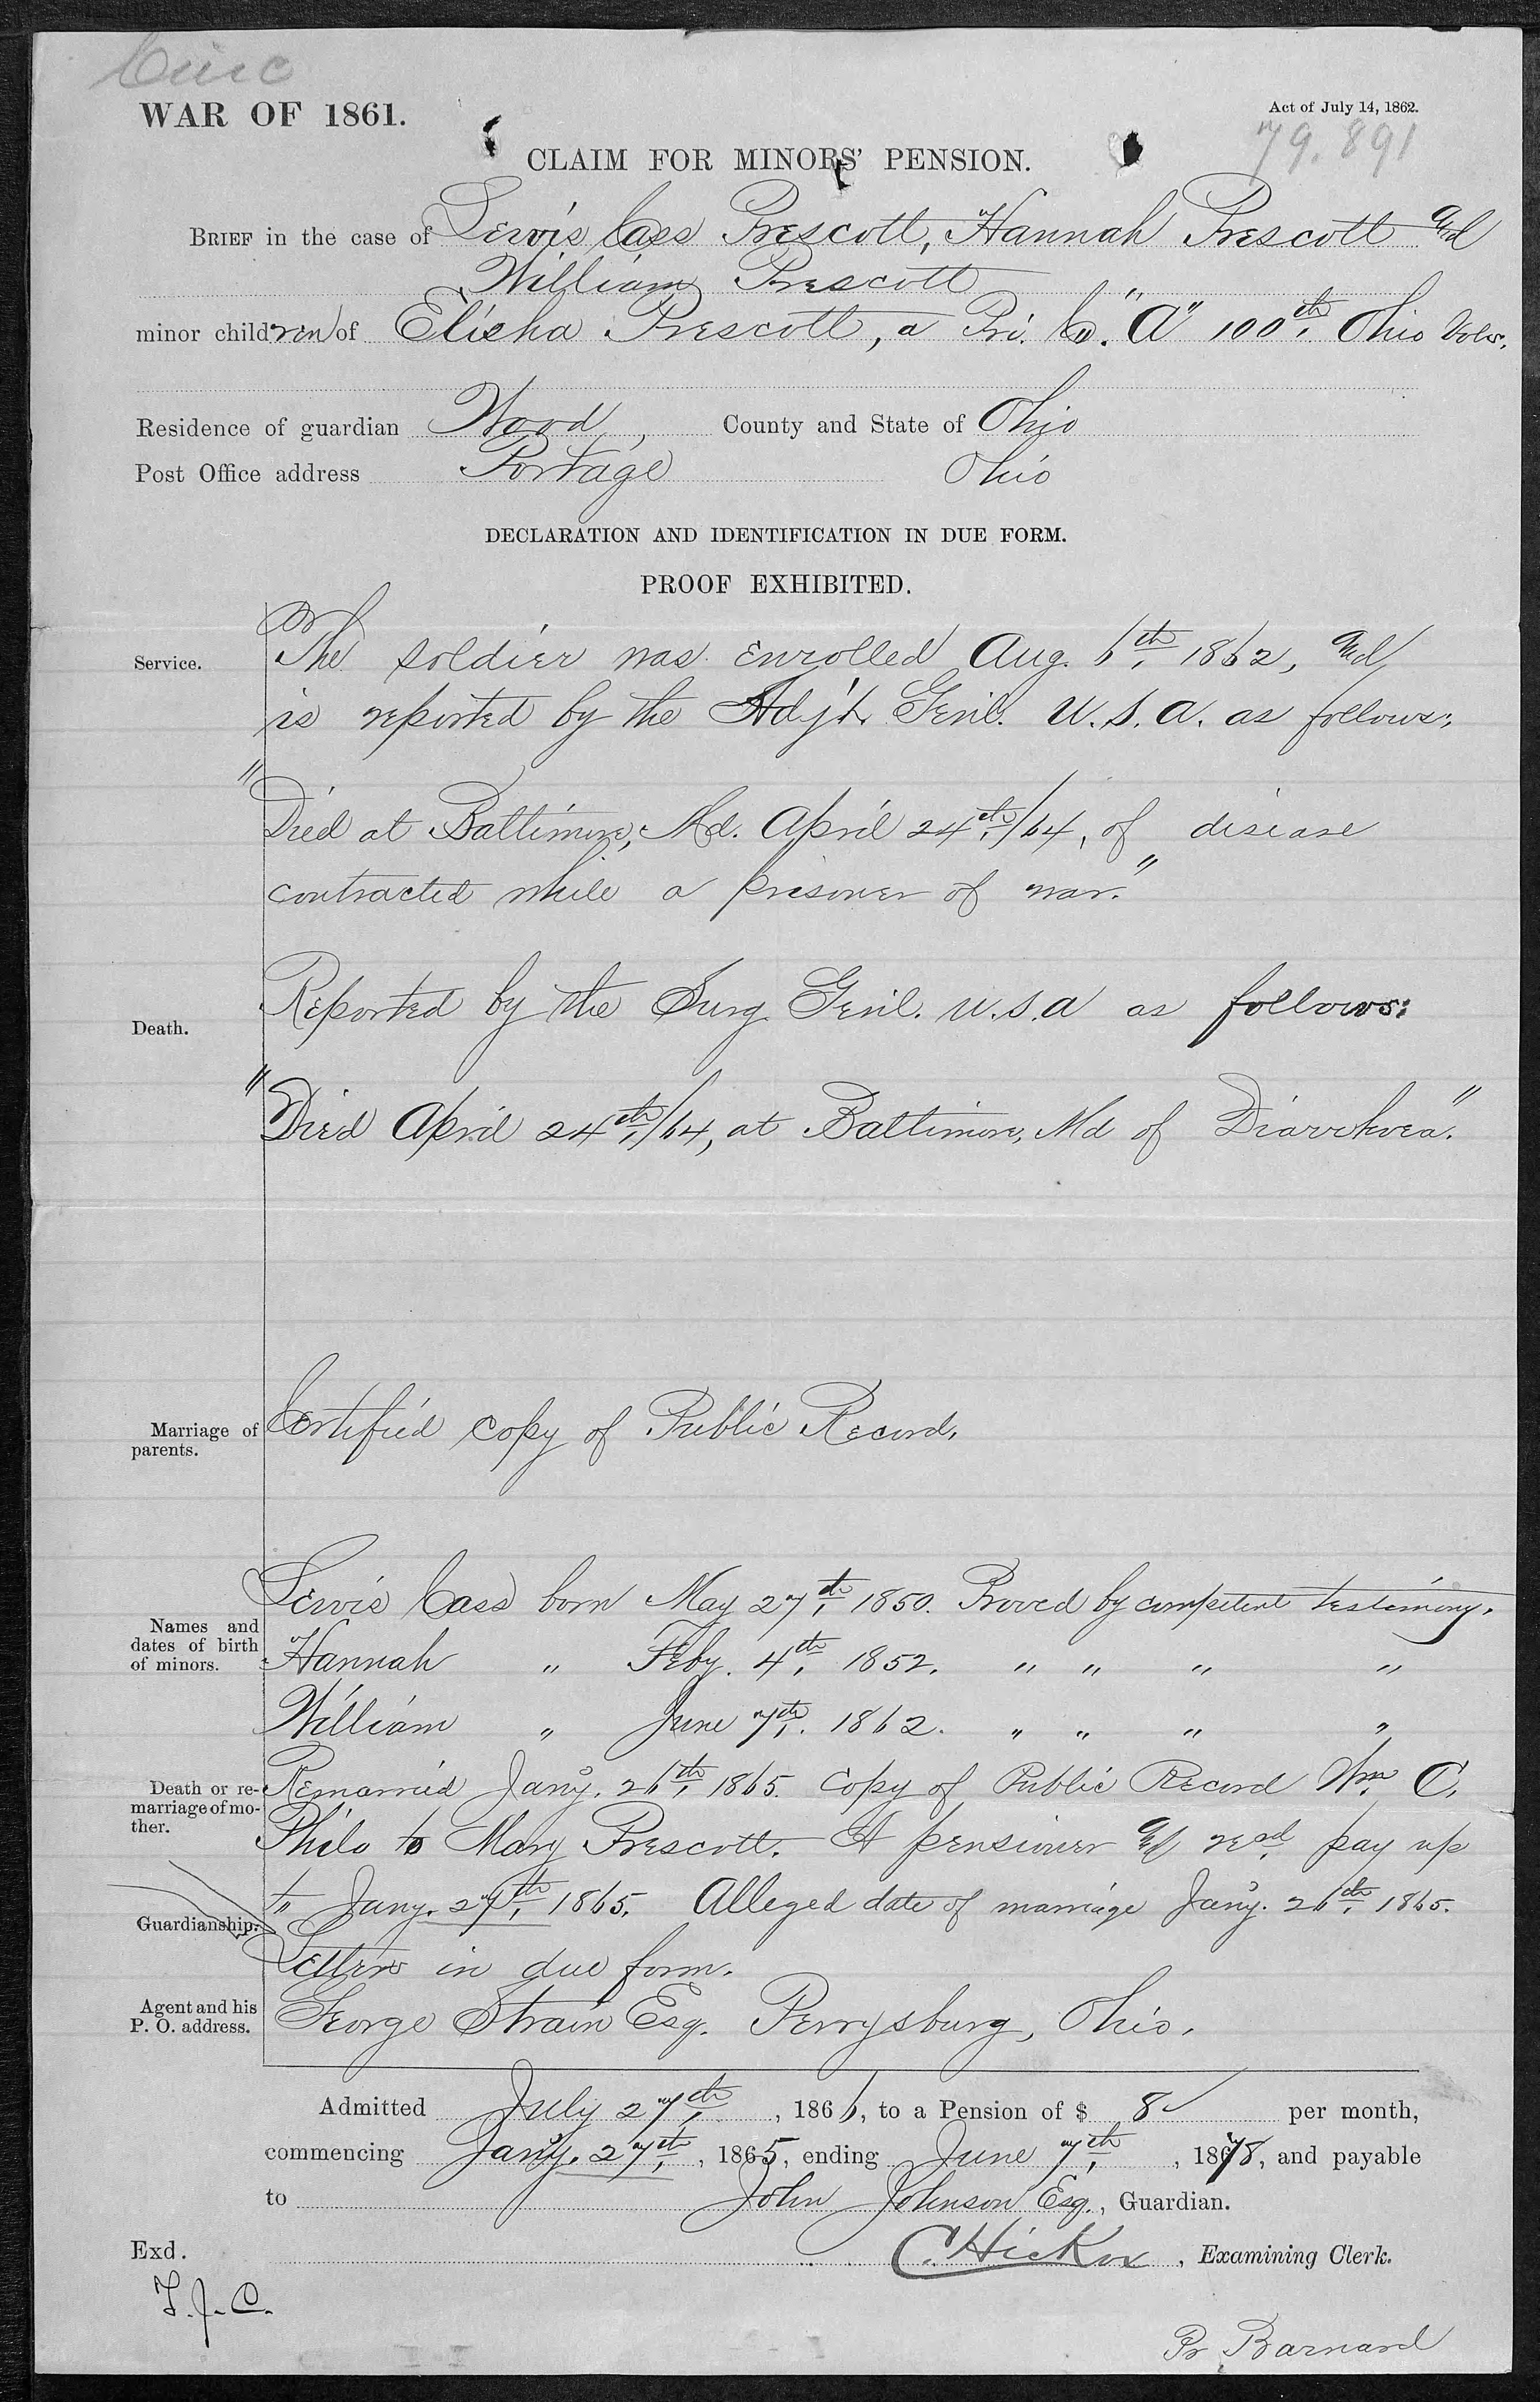 Cinc
WAR OF 1861.
Act of July 14, 1862.
79.891
CLAIM FOR MINORS' PENSION.
BRIEF in the case of Lewis Cass Prescott, Hannah Prescott and
William Prescott
minor children of Elisha Prescott, a Pri. Co. "A" 100th Ohio Vols.
Residence of guardian Wood, County and State of Ohio
Post Office address Portage Ohio
DECLARATION AND IDENTIFICATION IN DUE FORM.
PROOF EXHIBITED.
Service. The soldier was enrolled Aug. 6th, 1862, and
is reported by the Adj't Genl. U.S.A. as follows:
"Died at Baltimore, Md. April 24th,/64, of disease
contracted while a prisoner of war."
Death. Reported by the Surg. Genl. U.S.A as follows:
"Died April 24th,/64, at Baltimore, Md of Diarrhoea."
Marriage of parents. Certified copy of Public Record.
Names and dates of birth of minors.
Lewis Cass born May 27th, 1850. Proved by competent testimony.
Hannah " Feby. 4th, 1852. " " " "
William " June 7th, 1862. " " " "
Death or re-marriage of mo-ther. Remarried Jany. 26th, 1865. Copy of Public Record Wm. C.
Philo to Mary Prescott. A pensioner and recd. pay up
to Jany. 27th, 1865. Alleged date of marriage Jany. 26th, 1865.
Guardianship. Letters in due form.
Agent and his P. O. address. George Strain Esq. Perrysburg, Ohio.
Admitted July 27th, , 1866, to a Pension of $ 8 per month,
commencing Jany. 27th, , 1865, ending June 7th, , 1878, and payable
to John Johnson Esq., Guardian.
C. Hickox , Examining Clerk.
Exd.
T.J.C.
Pr Barnard